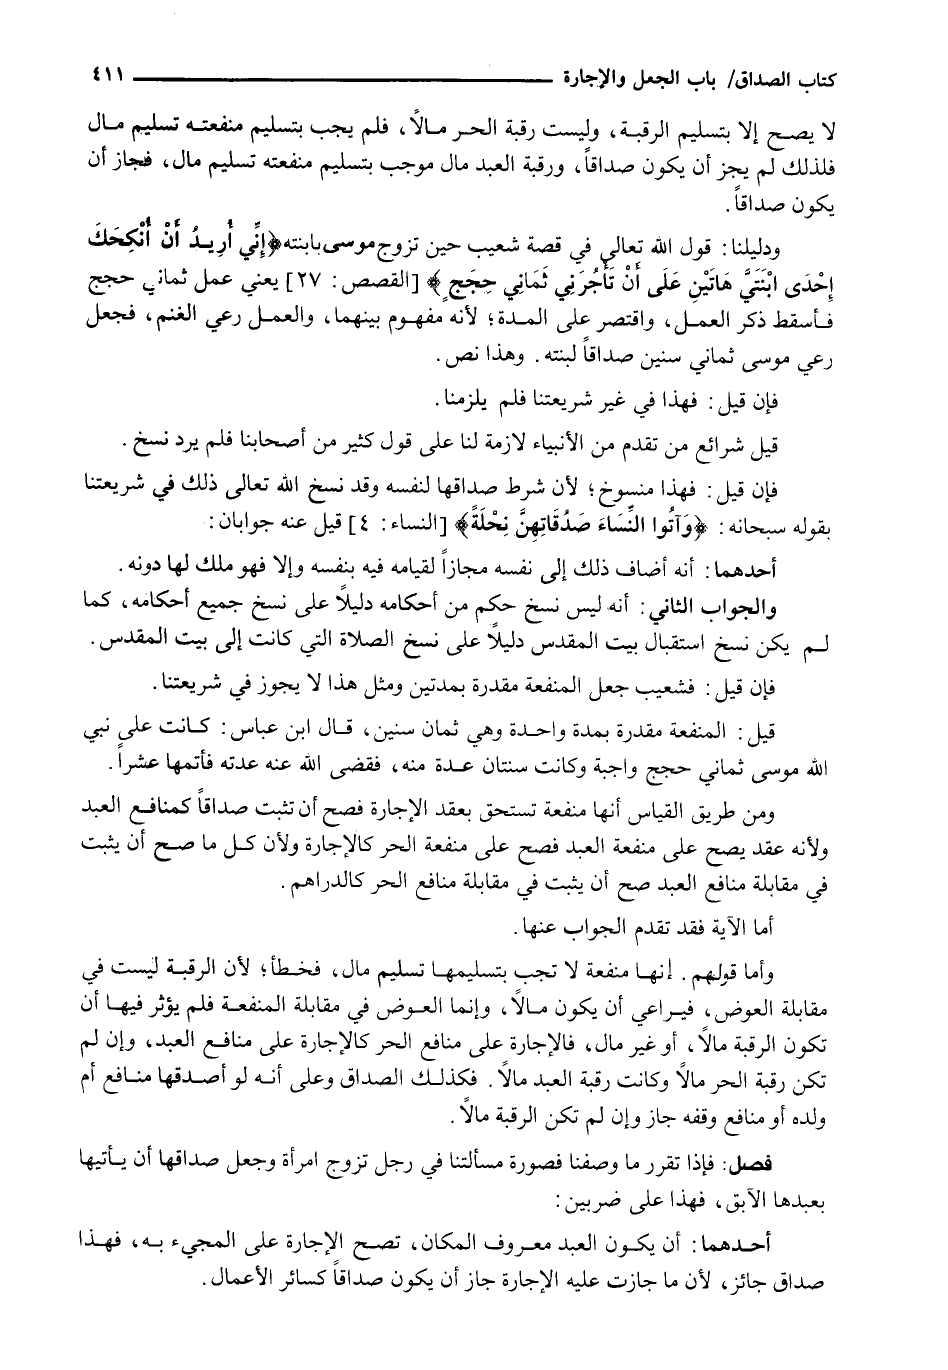 كتاب الصداق/ باب الجعل والإجارة ٤١١
لا يصح إلا بتسليم الرقبة، وليست رقبة الحر مالاً، فلم يجب بتسليم منفعته تسليم مال
فلذلك لم يجز أن يكون صداقاً، ورقبة العبد مال موجب بتسليم منفعته تسليم مال، فجاز أن
يكون صداقاً.
ودليلنا: قول الله تعالى في قصة شعيب حين تزوج موسى بابنته ﴿إِنِّي أُرِيدُ أَنْ أُنْكِحَكَ
إِحْدَى ابْنَتَيَّ هَاتَيْنِ عَلَى أَنْ تَأْجُرَنِي ثَمَانِي حِجَجٍ﴾ [القصص: ٢٧] يعني عمل ثماني حجج
فأسقط ذكر العمل، واقتصر على المدة؛ لأنه مفهوم بينهما، والعمل رعي الغنم، فجعل
رعي موسى ثماني سنين صداقاً لبنته. وهذا نص.
فإن قيل: فهذا في غير شريعتنا فلم يلزمنا.
قيل شرائع من تقدم من الأنبياء لازمة لنا على قول كثير من أصحابنا فلم يرد نسخ.
فإن قيل: فهذا منسوخ؛ لأن شرط صداقها لنفسه وقد نسخ الله تعالى ذلك في شريعتنا
بقوله سبحانه: ﴿وَآتُوا النِّسَاءَ صَدُقَاتِهِنَّ نِحْلَةً﴾ [النساء: ٤] قيل عنه جوابان:
أحدهما: أنه أضاف ذلك إلى نفسه مجازاً لقيامه فيه بنفسه وإلا فهو ملك لها دونه.
والجواب الثاني: أنه ليس نسخ حكم من أحكامه دليلاً على نسخ جميع أحكامه، كما
لم يكن نسخ استقبال بيت المقدس دليلاً على نسخ الصلاة التي كانت إلى بيت المقدس.
فإن قيل: فشعيب جعل المنفعة مقدرة بمدتين ومثل هذا لا يجوز في شريعتنا.
قيل: المنفعة مقدرة بمدة واحدة وهي ثمان سنين، قال ابن عباس: كانت على نبي
الله موسى ثماني حجج واجبة وكانت سنتان عدة منه، فقضى الله عنه عدته فأتمها عشراً.
ومن طريق القياس أنها منفعة تستحق بعقد الإجارة فصح أن تثبت صداقاً كمنافع العبد
ولأنه عقد يصح على منفعة العبد فصح على منفعة الحر كالإجارة ولأن كل ما صح أن يثبت
في مقابلة منافع العبد صح أن يثبت في مقابلة منافع الحر كالدراهم.
أما الآية فقد تقدم الجواب عنها.
وأما قولهم. إنها منفعة لا تجب بتسليمها تسليم مال، فخطأ؛ لأن الرقبة ليست في
مقابلة العوض، فيراعي أن يكون مالاً، وإنما العوض في مقابلة المنفعة فلم يؤثر فيها أن
تكون الرقبة مالاً، أو غير مال، فالإجارة على منافع الحر كالإجارة على منافع العبد، وإن لم
تكن رقبة الحر مالاً وكانت رقبة العبد مالاً. فكذلك الصداق وعلى أنه لو أصدقها منافع أم
ولده أو منافع وقفه جاز وإن لم تكن الرقبة مالاً.
فصل: فإذا تقرر ما وصفنا فصورة مسألتنا في رجل تزوج امرأة وجعل صداقها أن يأتيها
بعبدها الآبق، فهذا على ضربين:
أحدهما: أن يكون العبد معروف المكان، تصح الإجارة على المجيء به، فهذا
صداق جائز، لأن ما جازت عليه الإجارة جاز أن يكون صداقاً كسائر الأعمال.